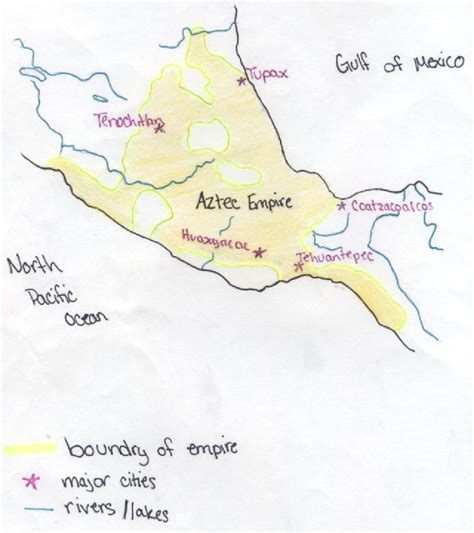 Gulf of Mexico
Tupax
Tenochitlan
Aztec Empire
Coatzacoalcos
Huaxyacac
Tehuantepec
North
Pacific
Ocean
boundry of empire
major cities
rivers/lakes